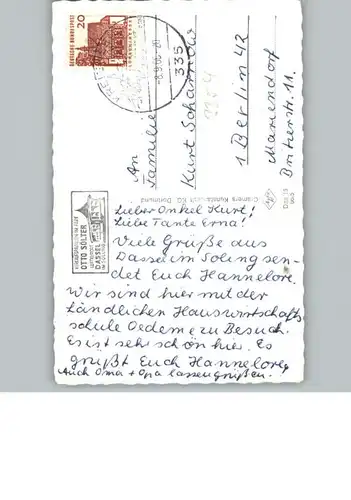 DEUTSCHE BUNDESPOST
20
335
-8.9.66
An
Familie
Kurt Scharnow
1 Berlin 42
Mariendorf
Britzerstr. 11
Cramers Kunstanstalt KG Dortmund
OTTO SÖLTER
DASSEL
Lieber Onkel Kurt!
Liebe Tante Erna!
Viele Grüße aus
Dassel im Solling sen-
det Euch Hannelore.
Wir sind hier mit der
Ländlichen Hauswirtschafts
schule Oedeme zu Besuch.
Es ist sehr schön hier. Es
grüßt Euch Hannelore
Auch Oma + Opa lassen grüßen.